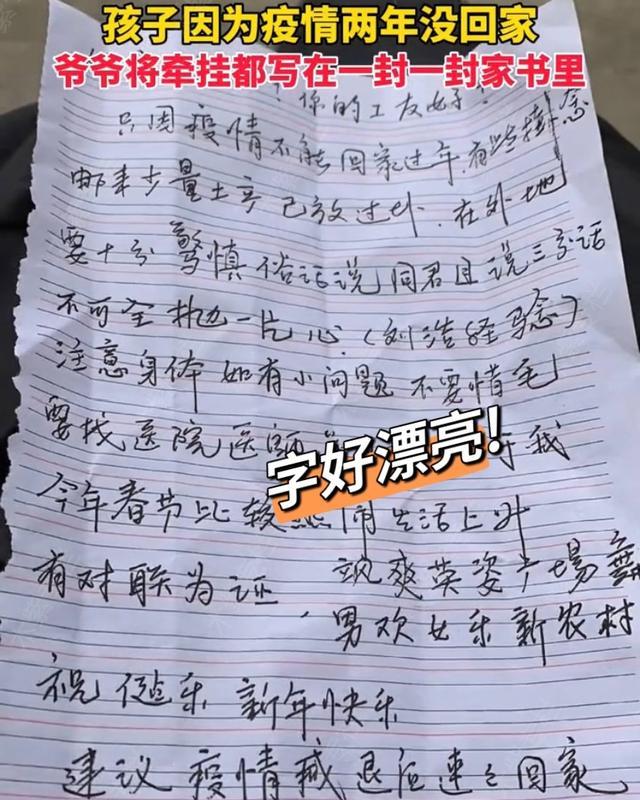 孩子因为疫情两年没回家
爷爷将牵挂都写在一封一封家书里
你的工友好？
只因疫情不能回家过年，有些挂念
邮来少量土产已放过外，在外地
要十分警慎俗话说同君且说三分话
不可全抛一片心（刘浩经验念）
注意身体如有小问题不要惜毛
要找医院医师 我
今年春节比较热闹生活上升
有对联为证 飒爽英姿广场舞
男欢女乐新农村
祝 乐 新年快乐
建议疫情减退后速之回家
字好漂亮!